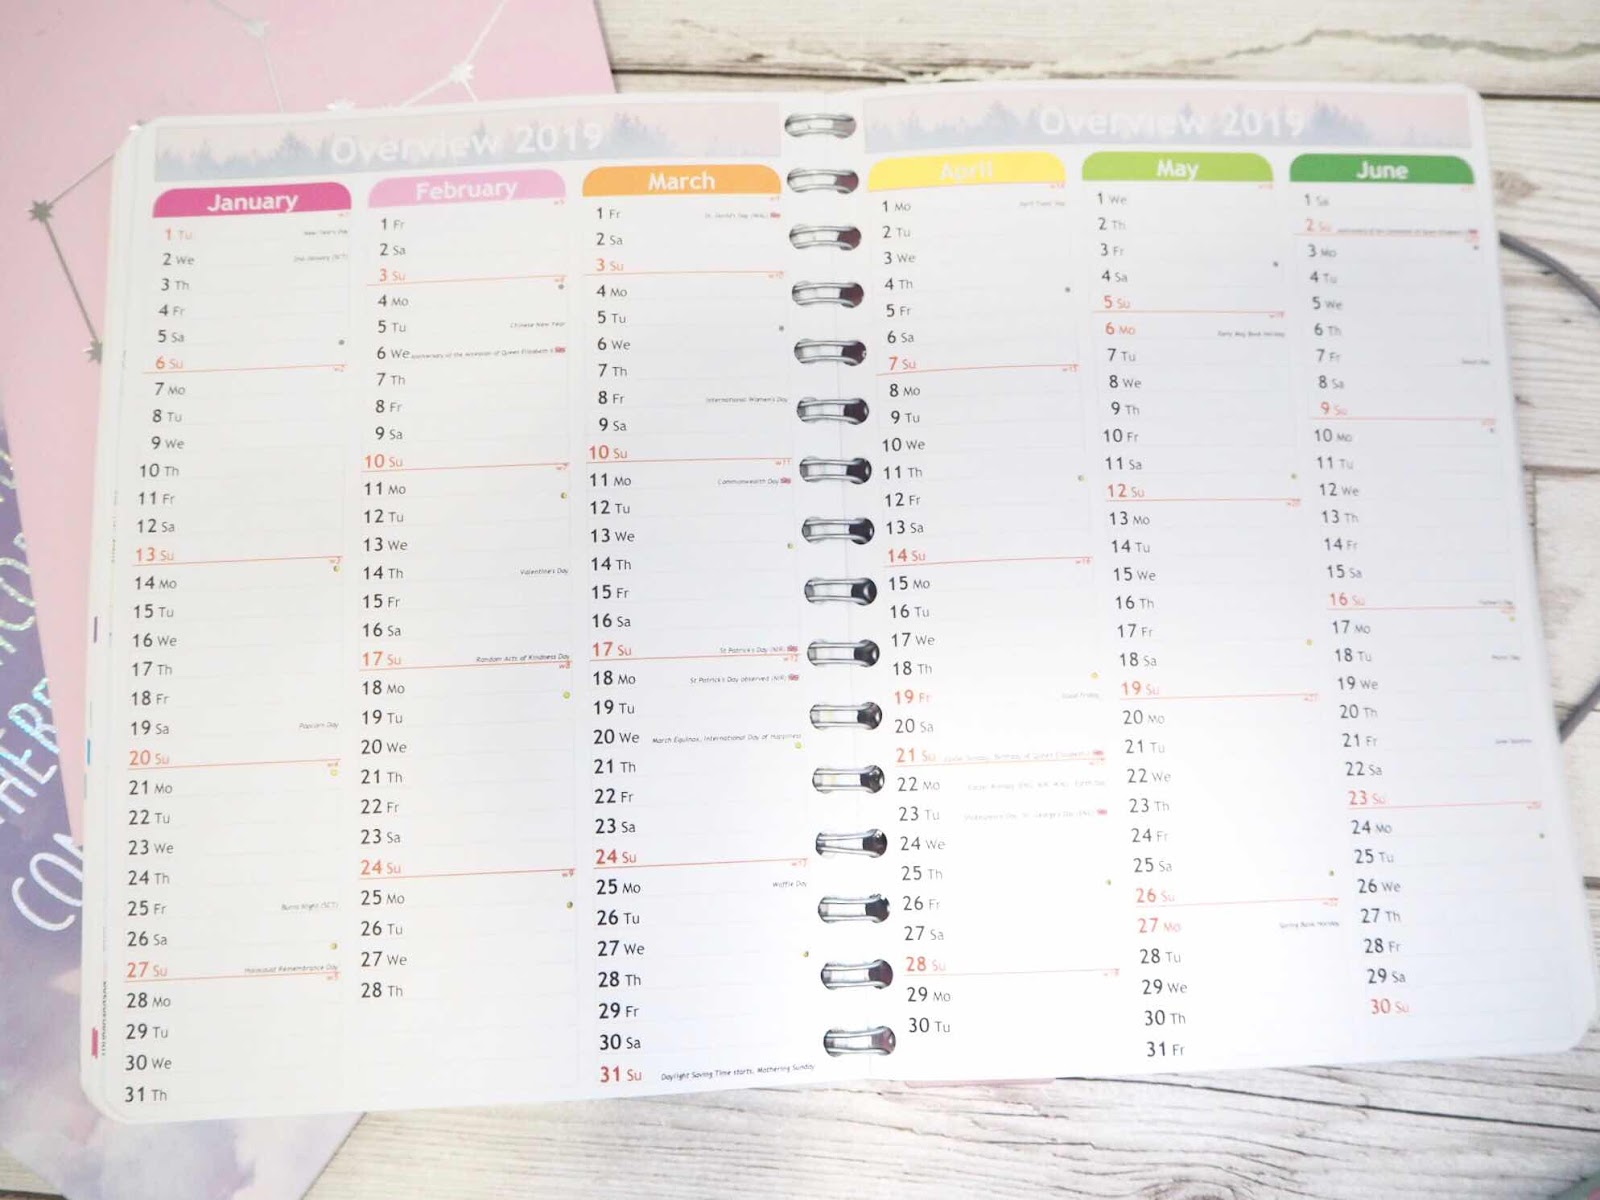 Overview 2019
January
1 Tu New Year's Day
2 We 2nd January (SCT)
3 Th
4 Fr
5 Sa
6 Su w2
7 Mo
8 Tu
9 We
10 Th
11 Fr
12 Sa
13 Su w3
14 Mo
15 Tu
16 We
17 Th
18 Fr
19 Sa Popcorn Day
20 Su w4
21 Mo
22 Tu
23 We
24 Th
25 Fr Burns Night (SCT)
26 Sa
27 Su Holocaust Remembrance Day w5
28 Mo
29 Tu
30 We
31 Th
February
w5
1 Fr
2 Sa
3 Su w6
4 Mo
5 Tu Chinese New Year
6 We anniversary of the accession of Queen Elizabeth II
7 Th
8 Fr
9 Sa
10 Su w7
11 Mo
12 Tu
13 We
14 Th Valentine's Day
15 Fr
16 Sa
17 Su Random Acts of Kindness Day w8
18 Mo
19 Tu
20 We
21 Th
22 Fr
23 Sa
24 Su w9
25 Mo
26 Tu
27 We
28 Th
March
w9
1 Fr St. David's Day (WAL)
2 Sa
3 Su w10
4 Mo
5 Tu
6 We
7 Th
8 Fr International Women's Day
9 Sa
10 Su w11
11 Mo Commonwealth Day
12 Tu
13 We
14 Th
15 Fr
16 Sa
17 Su St Patrick's Day (NIR) w12
18 Mo St Patrick's Day observed (NIR)
19 Tu
20 We March Equinox, International Day of Happiness
21 Th
22 Fr
23 Sa
24 Su w13
25 Mo Waffle Day
26 Tu
27 We
28 Th
29 Fr
30 Sa
31 Su Daylight Saving Time starts, Mothering Sunday
Overview 2019
April
w14
1 Mo April Fools' Day
2 Tu
3 We
4 Th
5 Fr
6 Sa
7 Su w15
8 Mo
9 Tu
10 We
11 Th
12 Fr
13 Sa
14 Su w16
15 Mo
16 Tu
17 We
18 Th
19 Fr Good Friday
20 Sa
21 Su Easter Sunday, Birthday of Queen Elizabeth II
22 Mo
23 Tu Shakespeare Day, St. George's Day (ENG)
24 We
25 Th
26 Fr
27 Sa
28 Su w18
29 Mo
30 Tu
May
1 We
2 Th
3 Fr
4 Sa
5 Su w19
6 Mo Early May Bank Holiday
7 Tu
8 We
9 Th
10 Fr
11 Sa
12 Su w20
13 Mo
14 Tu
15 We
16 Th
17 Fr
18 Sa
19 Su w21
20 Mo
21 Tu
22 We
23 Th
24 Fr
25 Sa
26 Su w22
27 Mo Spring Bank Holiday
28 Tu
29 We
30 Th
31 Fr
June
1 Sa
2 Su anniversary of the coronation of Queen Elizabeth II
3 Mo
4 Tu
5 We
6 Th
7 Fr
8 Sa
9 Su
10 Mo
11 Tu
12 We
13 Th
14 Fr
15 Sa
16 Su Father's Day
17 Mo
18 Tu
19 We
20 Th
21 Fr June Solstice
22 Sa
23 Su w26
24 Mo
25 Tu
26 We
27 Th
28 Fr
29 Sa
30 Su